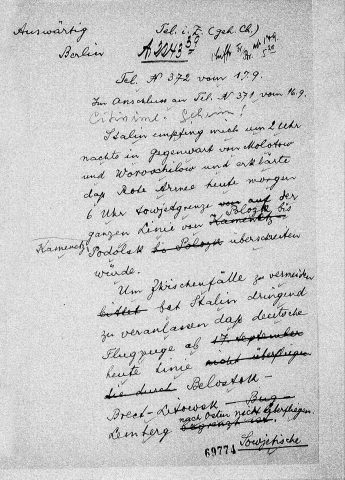 Auswärtig Tel. i. Z. (geh. Ch.)
Berlin A 2243 39
Tel. N 372 vom 17.9.
Im Anschluss an Tel. N 371 vom 16.9.
Citissime! Geheim!
Stalin empfing mich um 2 Uhr
nachts in Gegenwart von Molotow
und Woroschilow und erklärte
daß Rote Armee heute morgen
6 Uhr Sowjetgrenze von auf der
ganzen Linie von Kamenetz Polozk bis
Kamenetz Podolsk bis Polozk überschreiten
würde.
Um Zwischenfälle zu vermeiden
bittet bat Stalin dringend
zu veranlassen daß deutsche
Flugzeuge ab 17. September
heute Linie nicht überfliegen
die durch Belostok –
Brest-Litowsk – Bug –
Lemberg nach Osten nicht überfliegen.
begrenzt ist. Sowjetische
69774